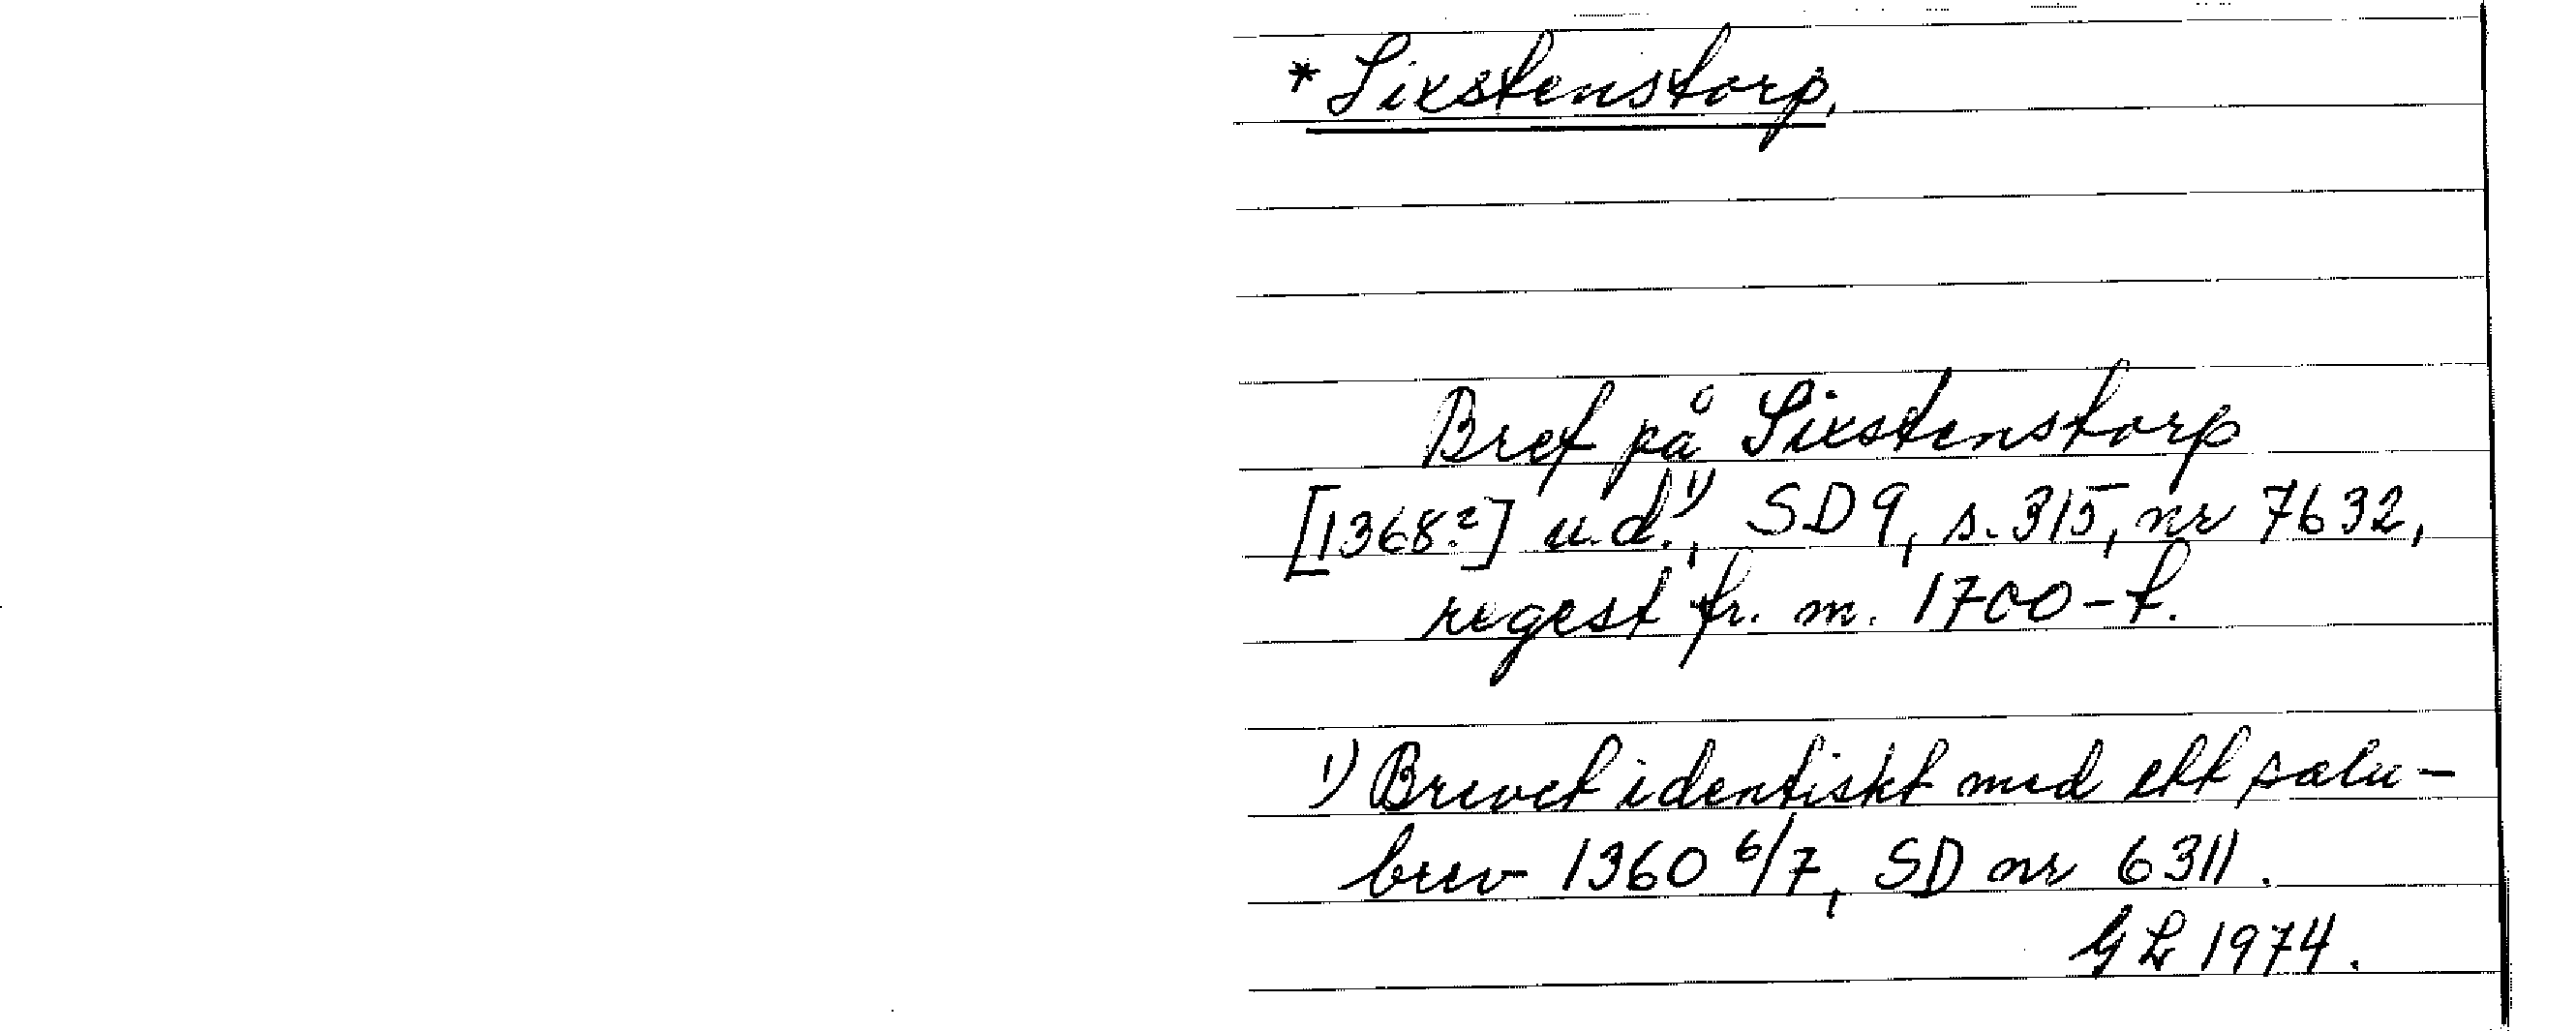 * Sixstenstorp.
Bref på Sixstenstorp
[1368?] u.d.¹⁾, SD 9, s. 315, nr 7632,
regest fr. m. 1700-t.
¹⁾ Brevet identiskt med ett salu-
brev 1360 6/7, SD nr 6311.
GL 1974.